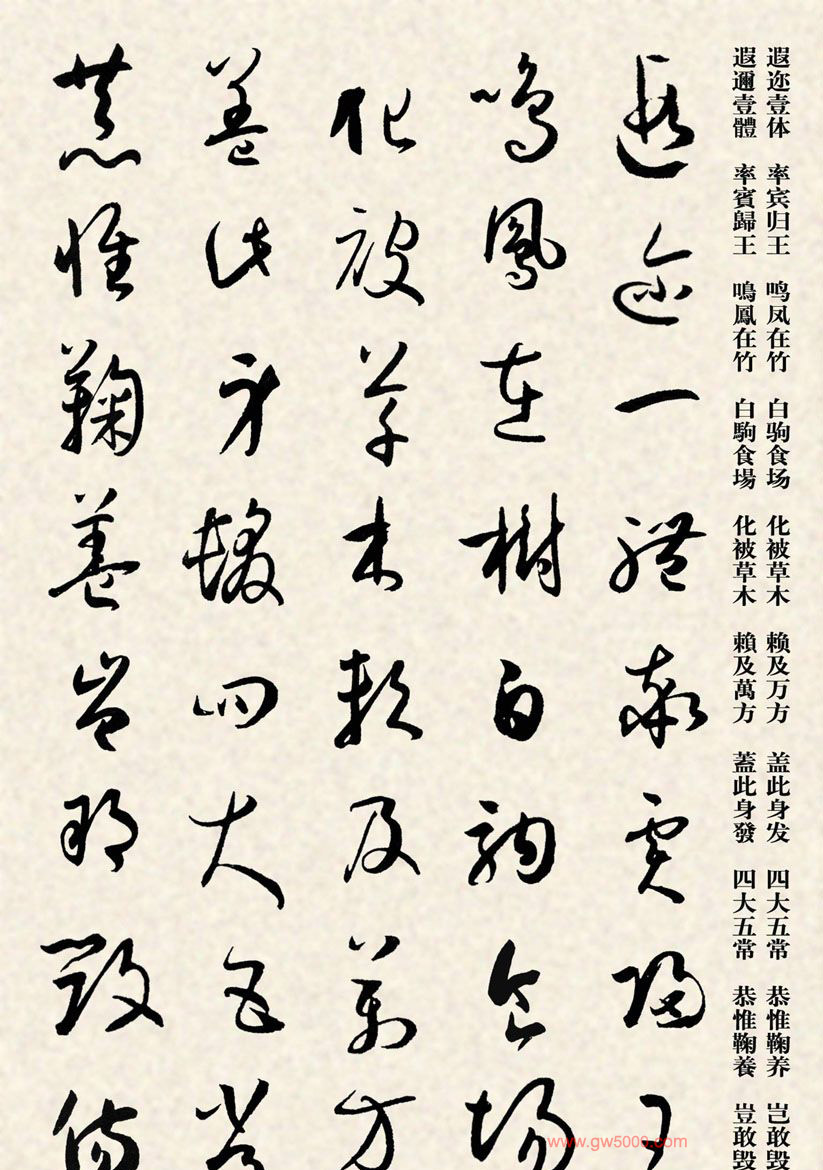 遐迩壹体 率宾归王 鸣凤在竹 白驹食场 化被草木 赖及万方 盖此身发 四大五常 恭惟鞠养 岂敢毁
遐邇壹體 率賓歸王 鳴鳳在竹 白駒食場 化被草木 賴及萬方 蓋此身發 四大五常 恭惟鞠養 豈敢毀
遐迩一體率賓歸王
鳴鳳在樹白駒食場
化被草木賴及萬方
蓋此身髮四大五常
恭惟鞠養豈敢毀傷
www.gw5000.com